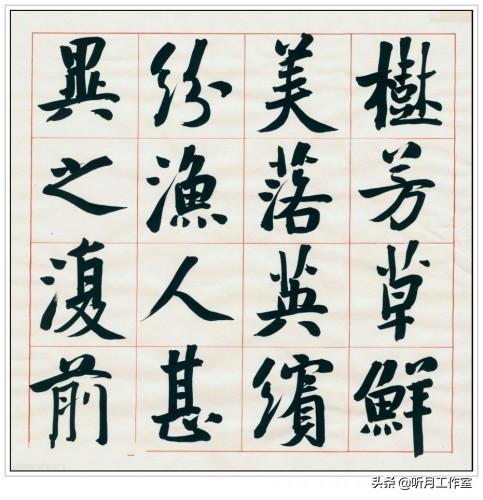 樹芳草鮮
美落英繽
紛漁人甚
異之復前
头条@听月工作室